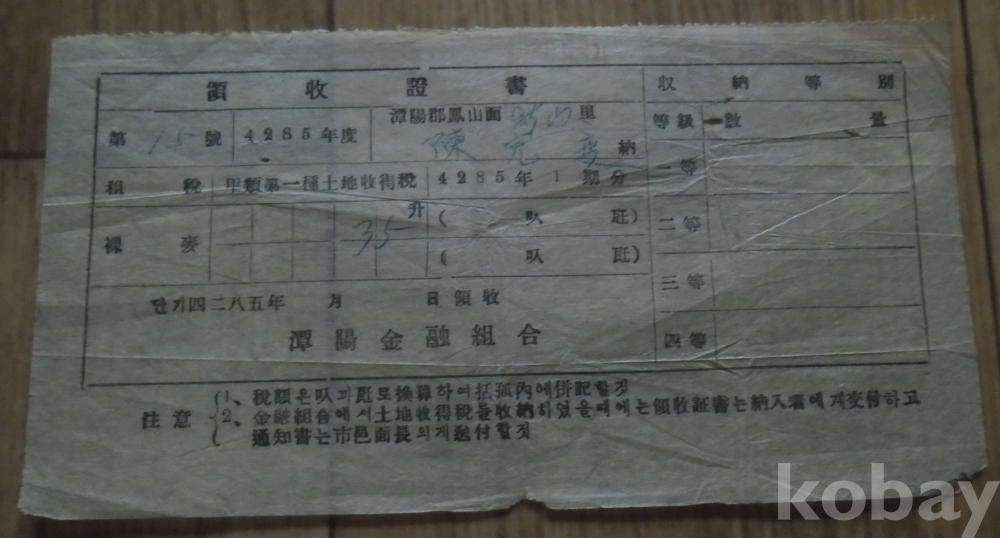 領收證書
第15號 4285年度 潭陽郡鳳山面 里
陳元 納
租稅 甲類第一種土地收得稅 4285年1期分
裸麥 35升 ( 叺 瓩)
( 叺 瓩)
단기四二八五年 月 日領收
潭陽金融組合
収納等別
等級 數量
一等
二等
三等
四等
注意
1、稅額은叺과瓩로換算하여括孤內에併記할것
2、金融組合에서土地收得稅를收納하였을때에는領收証書는納入者에게交付하고
通知書는市邑面長의게送付할것
kobay